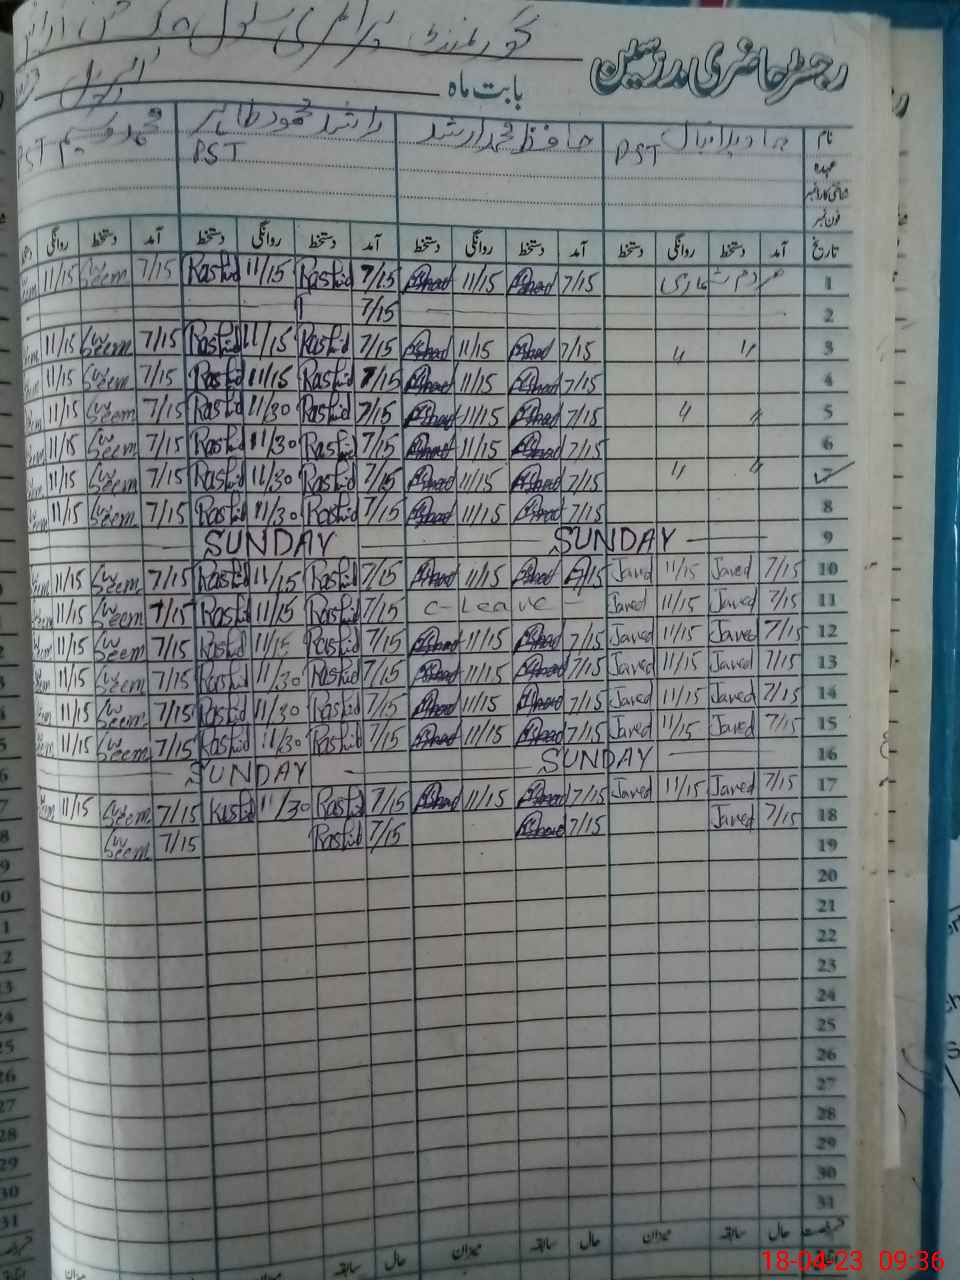 گورنمنٹ پرائمری سکول
رجسٹر حاضری مدرسین
بابت ماہ اپریل
نام جاوید اقبال حافظ محمد ارشد راشد محمود طاہر محمد وسیم
عہدہ PST PST PST
شناختی کارڈ نمبر
فون نمبر
تاریخ آمد دستخط روانگی دستخط آمد دستخط روانگی دستخط آمد دستخط روانگی دستخط آمد دستخط روانگی
1 مردم شماری 7/15 Arshad 11/15 Arshad 7/15 Rashid 11/15 Rashid 7/15 Waseem 11/15
2 7/15
3 " " 7/15 Arshad 11/15 Arshad 7/15 Rashid 11/15 Rashid 7/15 Waseem 11/15
4 7/15 Arshad 11/15 Arshad 7/15 Rashid 11/15 Rashid 7/15 Waseem 11/15
5 " " 7/15 Arshad 11/15 Arshad 7/15 Rashid 11/30 Rashid 7/15 Waseem 11/15
6 7/15 Arshad 11/15 Arshad 7/15 Rashid 11/30 Rashid 7/15 Waseem 11/15
7 " " 7/15 Arshad 11/15 Arshad 7/15 Rashid 11/30 Rashid 7/15 Waseem 11/15
8 7/15 Arshad 11/15 Arshad 7/15 Rashid 11/30 Rashid 7/15 Waseem 11/15
9 SUNDAY SUNDAY
10 7/15 Javed 11/15 Javed 7/15 Arshad 11/15 Arshad 7/15 Rashid 11/15 Rashid 7/15 Waseem 11/15
11 7/15 Javed 11/15 Javed C-Leave 7/15 Rashid 11/15 Rashid 7/15 Waseem 11/15
12 7/15 Javed 11/15 Javed 7/15 Arshad 11/15 Arshad 7/15 Rashid 11/15 Rashid 7/15 Waseem 11/15
13 7/15 Javed 11/15 Javed 7/15 Arshad 11/15 Arshad 7/15 Rashid 11/30 Rashid 7/15 Waseem 11/15
14 7/15 Javed 11/15 Javed 7/15 Arshad 11/15 Arshad 7/15 Rashid 11/30 Rashid 7/15 Waseem 11/15
15 7/15 Javed 11/15 Javed 7/15 Arshad 11/15 Arshad 7/15 Rashid 11/30 Rashid 7/15 Waseem 11/15
16 SUNDAY SUNDAY
17 7/15 Javed 11/15 Javed 7/15 Arshad 11/15 Arshad 7/15 Rashid 11/30 Rashid 7/15 Waseem 11/15
18 7/15 Javed 7/15 Arshad 7/15 Rashid 7/15 Waseem
19
20
21
22
23
24
25
26
27
28
29
30
31
حال سابقہ میزان حال سابقہ میزان حال سابقہ میزان
18-04-23 09:36